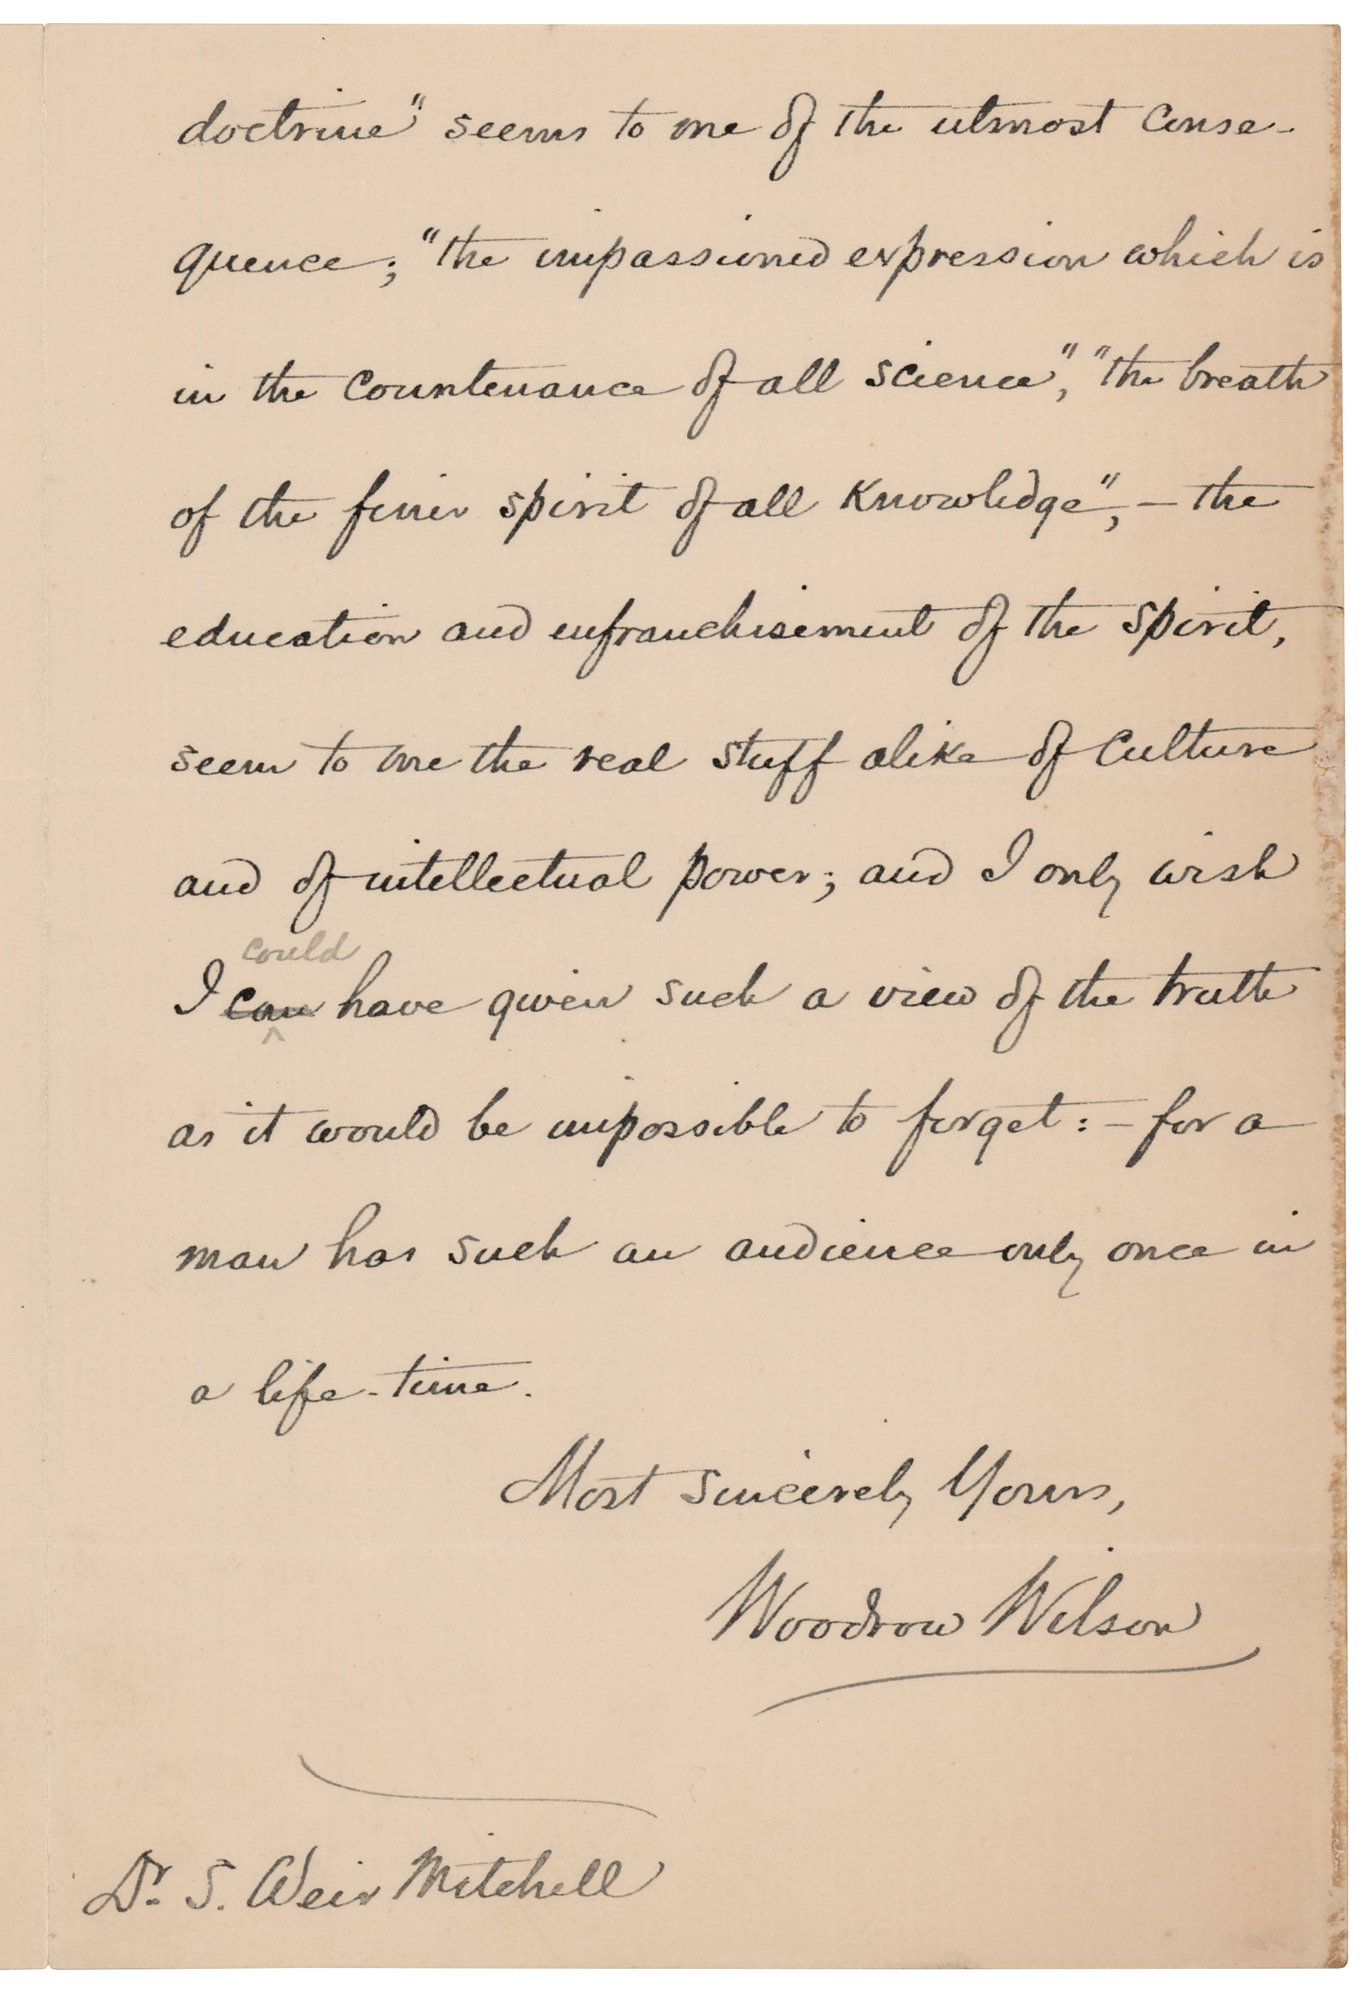 doctrine" seems to me of the utmost conse-
quence; "the impassioned expression which is
in the countenance of all science", "the breath
of the finer spirit of all knowledge", — the
education and enfranchisement of the spirit,
seem to me the real stuff alike of culture
and of intellectual power; and I only wish
could
I can have given such a view of the truth
as it would be impossible to forget: — for a
man has such an audience only once in
a life-time.
Most sincerely Yours,
Woodrow Wilson
Dr. S. Weir Mitchell